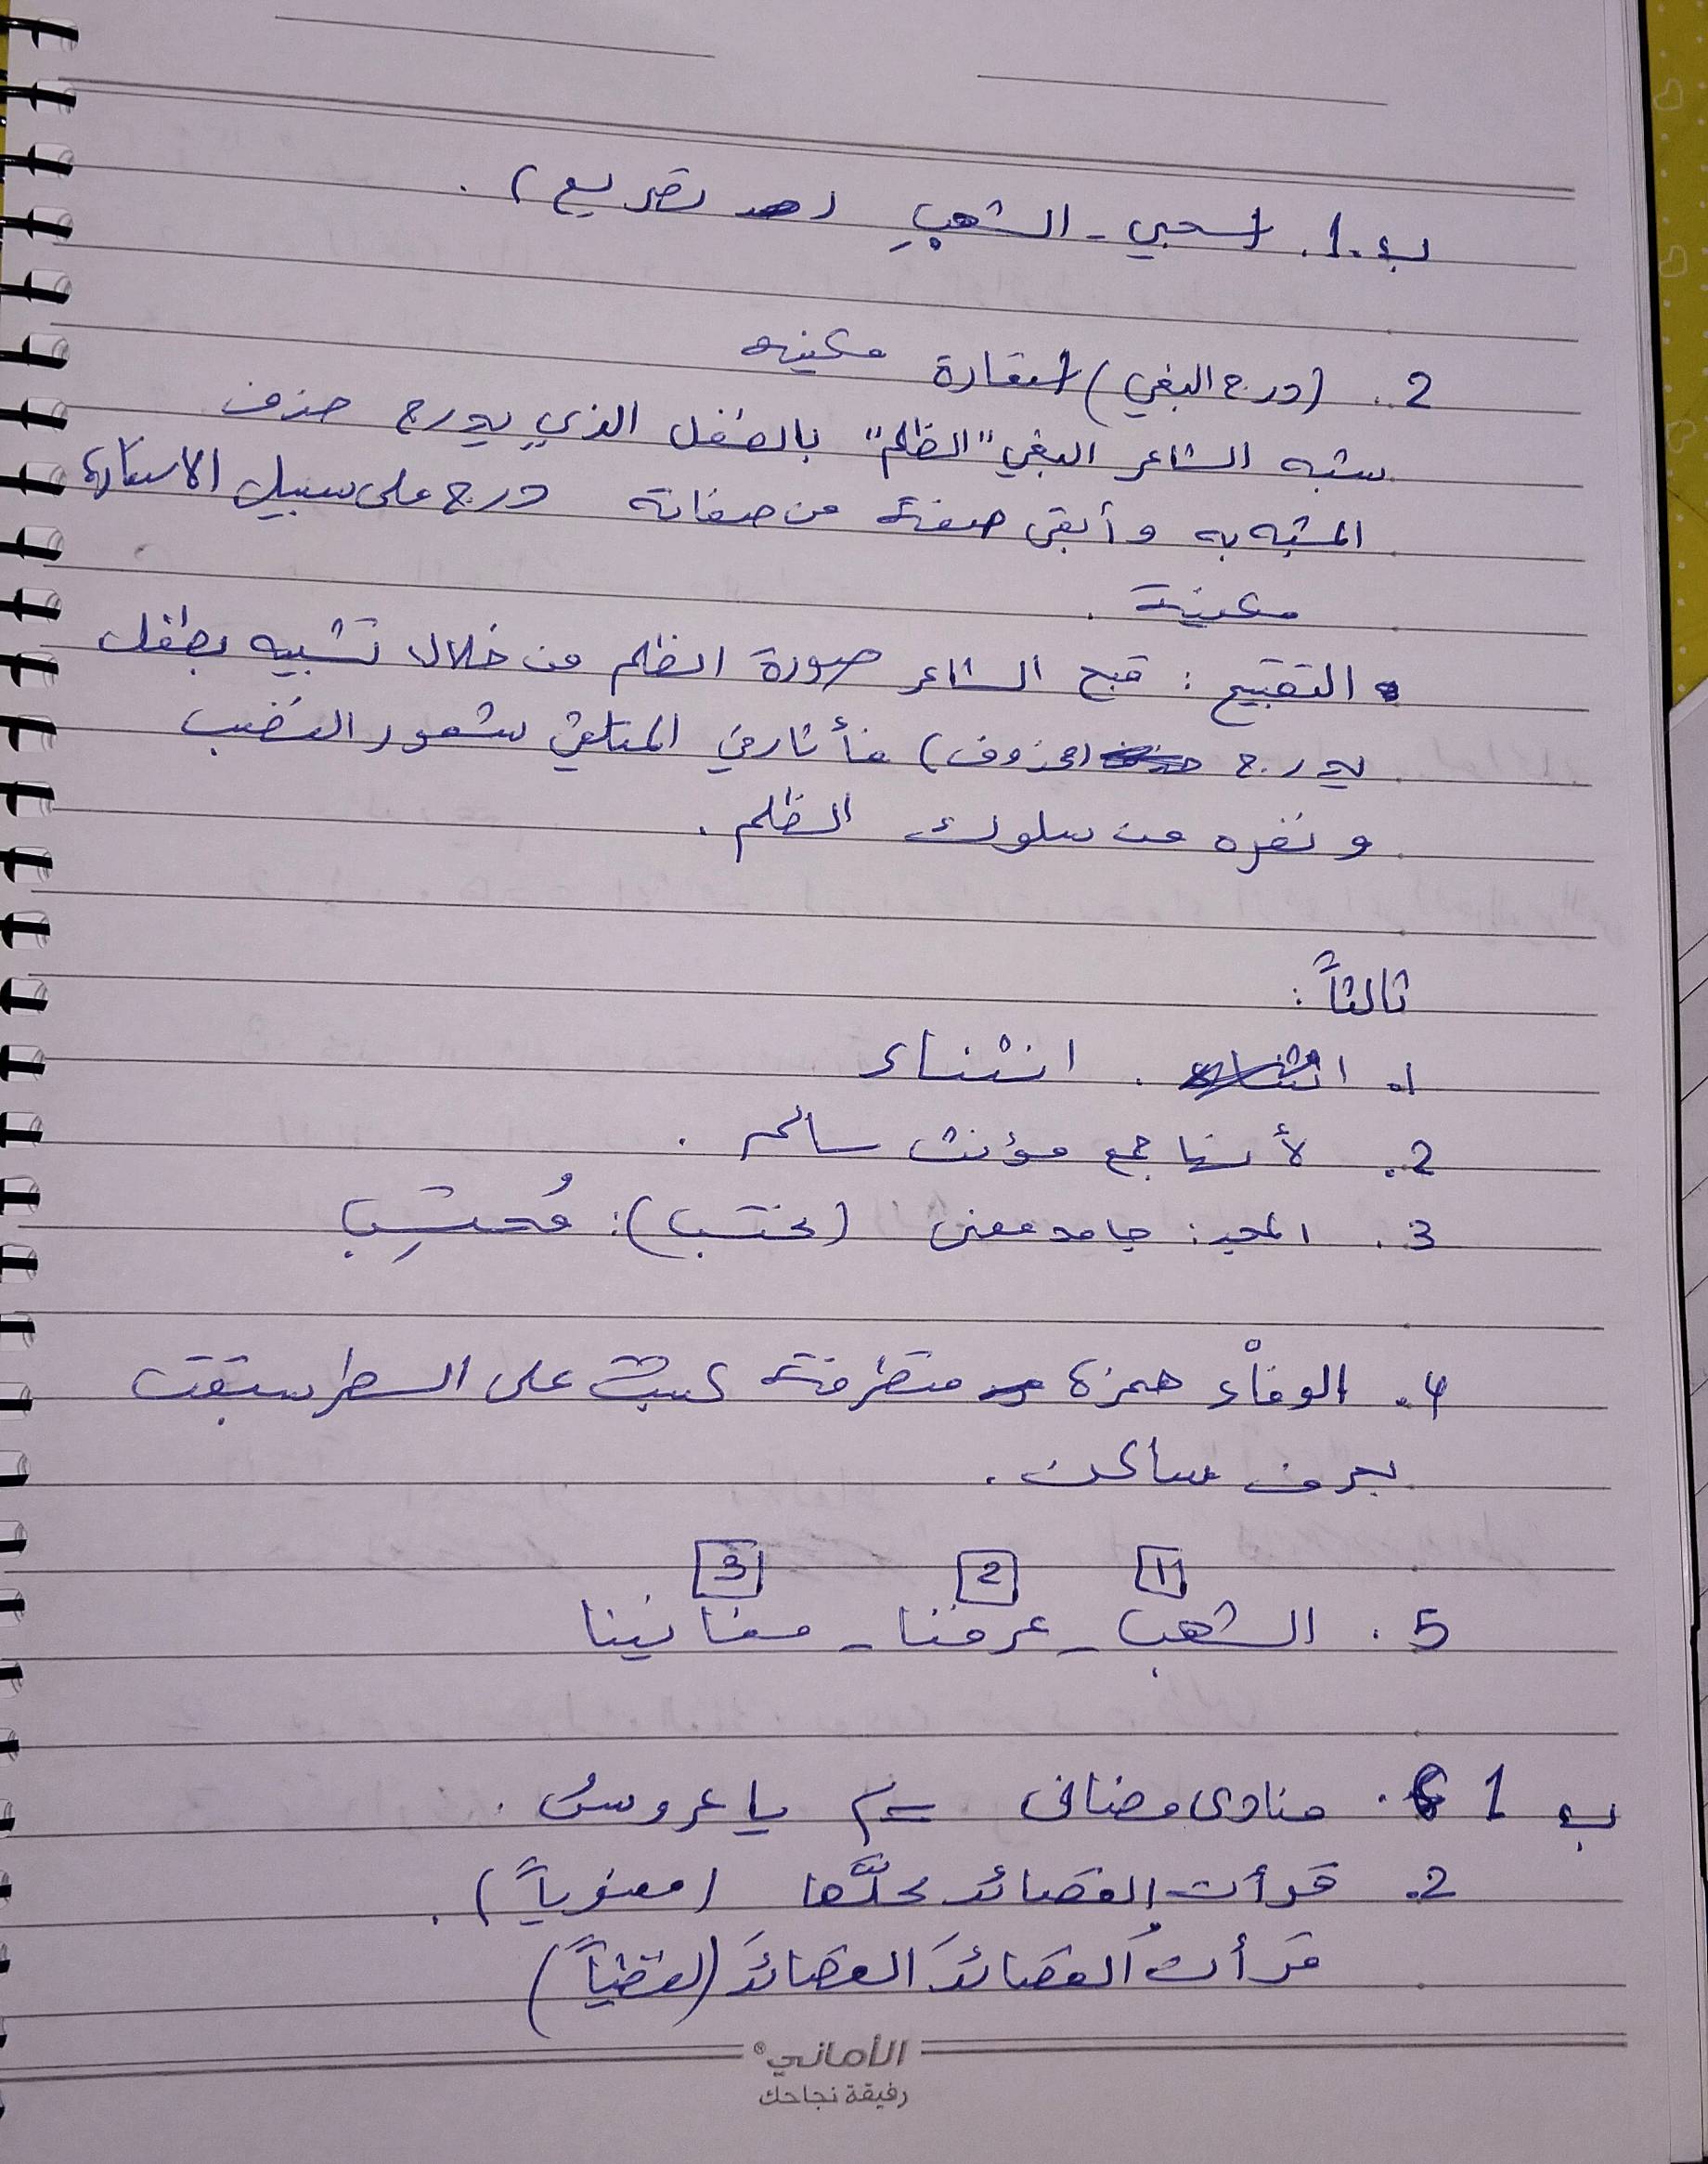 ب.1. اسحبي - الشهبِ (تصريع).
2. (درج البغي) استعارة مكنيه
شبه الشاعر البغي "الظلم" بالطفل الذي يدرج حذف
المشبه به وأبقى صفة من صفاته درج على سبيل الاستعارة
مكنية.
• التقبيح: قبح الشاعر صورة الظلم من خلال تشبيه بطفل
يدرج (محذوف) فأثار في المتلقي شعور الغضب
ونفره من سلوك الظلم.
ثالثاً:
1. انثناء
2. لأنها جمع مؤنث سالم.
3. المجد: جامد معنى (تحتسب): مُحتسِب
4. الوفاْء همزة متطرفة كتبت على السطر سبقت
بحرف ساكن.
1 2 3
5. الشهب - عرفنا - مغانينا
ب 1. منادى مضاف ⇐ يا عروسُ.
2. قرأت القصائد كلَّها (معنوياً).
قرأتُ القصائدَ القصائدَ (لفظياً)
الأماني
رفيقة نجاحك